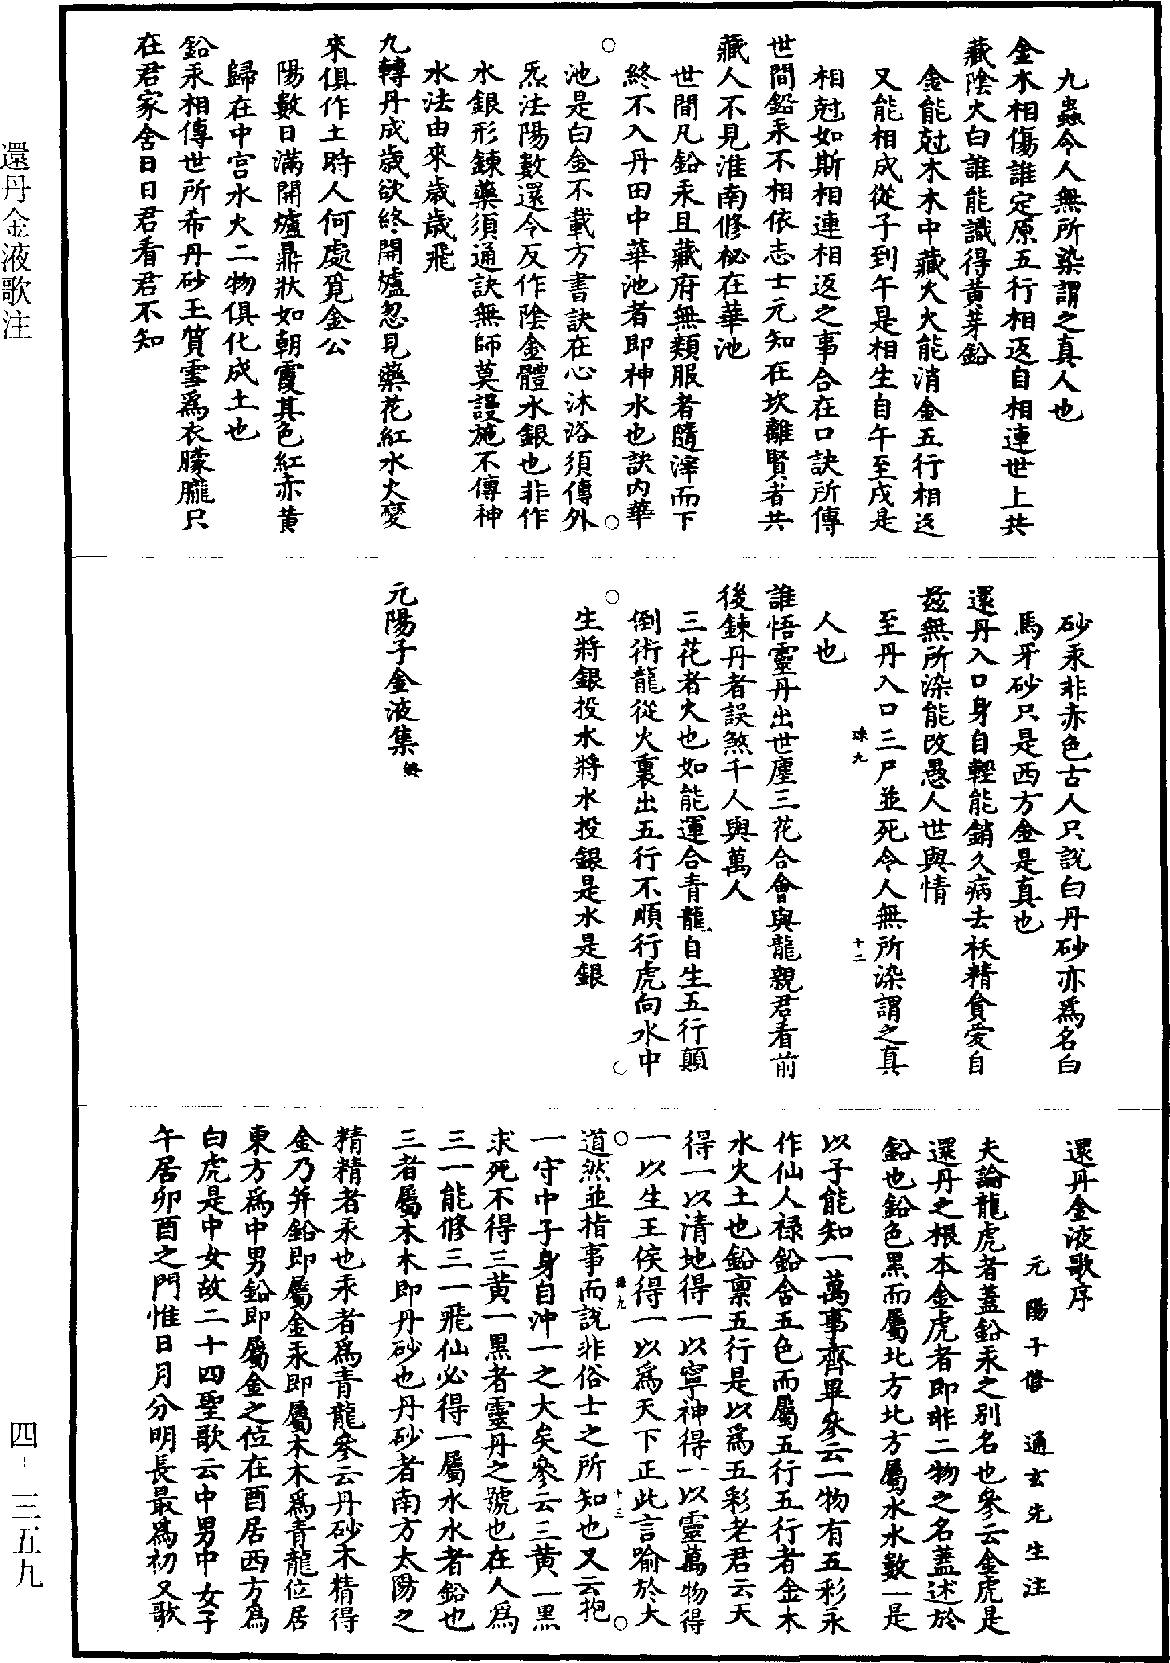 九蟲令人無所染謂之真人也
金木相傷誰定原五行相返自相連世上共
藏陰火白誰能識得黃芽鉛
金能尅木木中藏火火能消金五行相返
又能相成從子到午是相生自午至戌是
相尅如斯相連相返之事合在口訣所傳
世間鉛汞不相依志士元知在坎離賢者共
藏人不見淮南修祕在華池
世間凡鉛汞且藏府無類服者隨滓而下
終不入丹田中華池者即神水也訣內華
池是白金不載方書訣在心沐浴須傳外
炁法陽數還令反作陰金體水銀也非作
水銀形鍊藥須通訣無師莫謾施不傳神
水法由來歲歲飛
九轉丹成歲欲終開爐忽見藥花紅水火變
來俱作土時人何處覓金公
陽數日滿開爐鼎狀如朝霞其色紅赤黃
歸在中宮水火二物俱化成土也
鉛汞相傳世所希丹砂玉質雪爲衣朦朧只
在君家舍日日君看君不知
砂汞非赤色古人只說白丹砂亦爲名白
馬牙砂只是西方金是真也
還丹入口身自輕能銷久病去祅精貪愛自
茲無所染能改愚人世與情
至丹入口三尸並死令人無所染謂之真
人也
誰悟靈丹出世塵三花合會與龍親君看前
後鍊丹者誤煞千人與萬人
三花者火也如能運合青龍自生五行顛
倒術龍從火裏出五行不順行虎向水中
生將銀投水將水投銀是水是銀
元陽子金液集終
還丹金液歌序
元陽子修　通玄先生注
夫論龍虎者蓋鉛汞之別名也參云金虎是
還丹之根本金虎者即非二物之名蓋述於
鉛也鉛色黑而屬北方北方屬水水數一是
以子能知一萬事齊畢參云一物有五彩永
作仙人祿鉛含五色而屬五行五行者金木
水火土也鉛稟五行是以爲五彩老君云天
得一以清地得一以寧神得一以靈萬物得
一以生王侯得一以爲天下正此言喻於大
道然並指事而說非俗士之所知也又云抱
一守中子身自沖一之大矣參云三黃一黑
求死不得三黃一黑者靈丹之號也在人爲
三一能修三一飛仙必得一屬水水者鉛也
三者屬木木即丹砂也丹砂者南方太陽之
精精者汞也汞者爲青龍參云丹砂木精得
金乃并鉛即屬金汞即屬木木爲青龍位居
東方爲中男鉛即屬金之位在酉居西方爲
白虎是中女故二十四聖歌云中男中女子
午居卯酉之門惟日月分明長最爲初又歌
還丹金液歌注
四-三五九